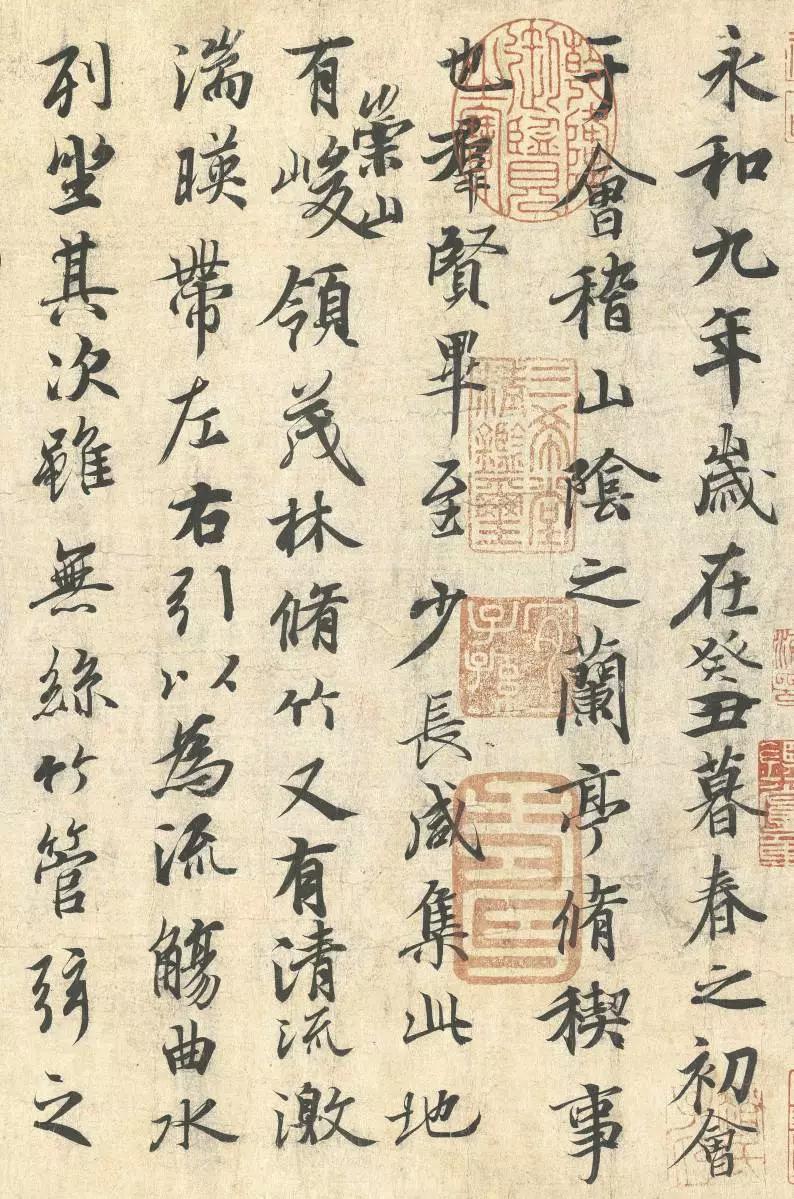 永和九年歲在癸丑暮春之初會
于會稽山陰之蘭亭脩稧事
也羣賢畢至少長咸集此地
有崇山峻領茂林脩竹又有清流激
湍暎帶左右引以為流觴曲水
列坐其次雖無絲竹管弦之
乾隆御覽之寶
三希堂精鑑璽
宜子孫